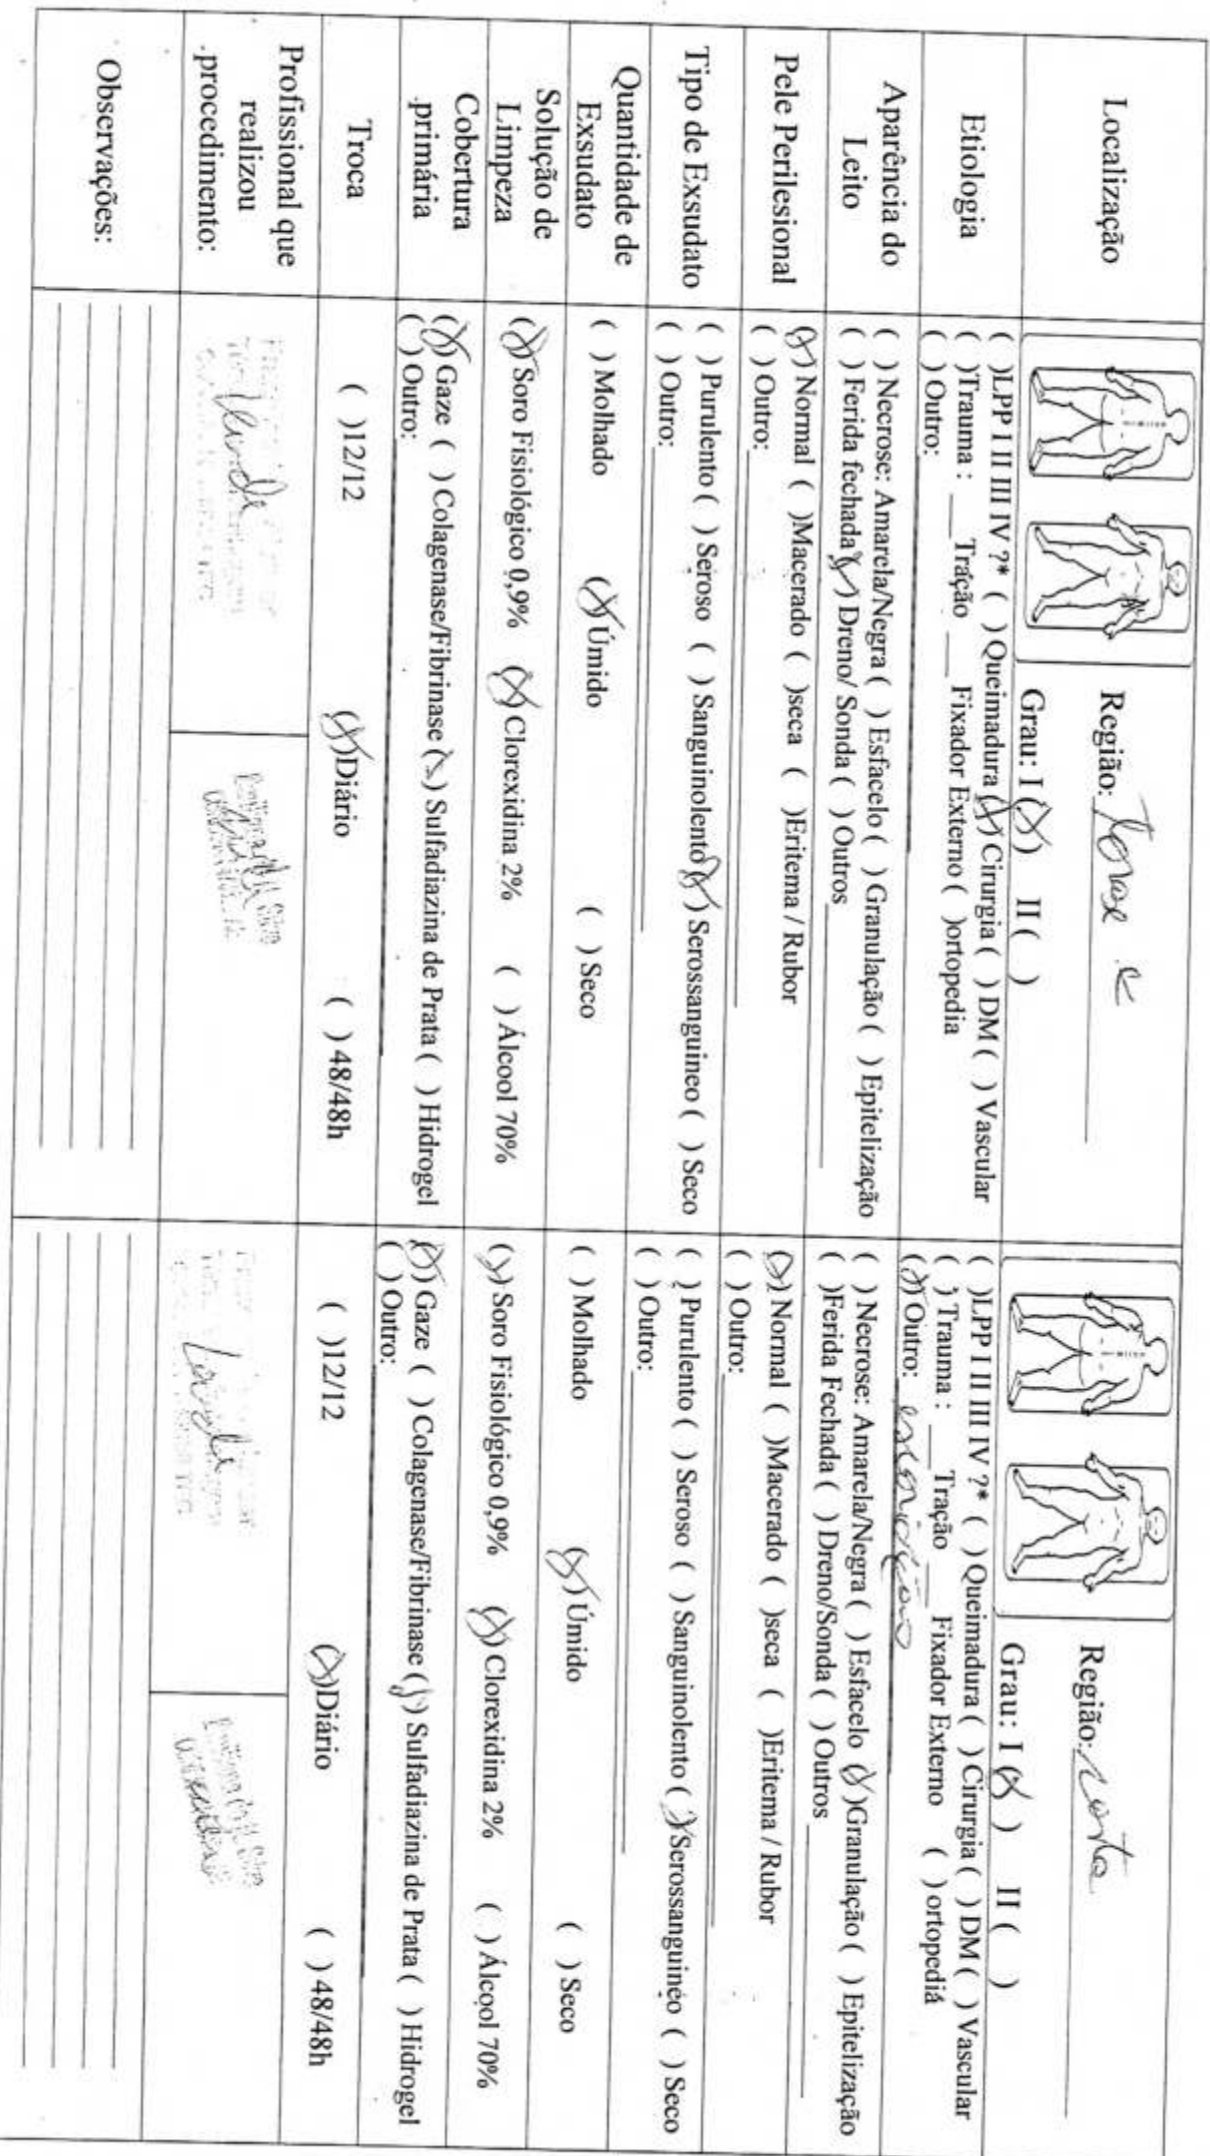 Localização
Região: Torax E
Grau: I (X) II ( )
Região: costa
Grau: I (X) II ( )
Etiologia
( )LPP I II III IV ?* ( )Queimadura (X) Cirurgia ( ) DM ( ) Vascular
( )Trauma : ___Tração ___ Fixador Externo ( )ortopedia
( ) Outro:
( )LPP I II III IV ?* ( )Queimadura ( ) Cirurgia ( ) DM ( ) Vascular
( ) Trauma : ___Tração ___ Fixador Externo ( ) ortopediá
(X) Outro:
Aparência do
Leito
( ) Necrose: Amarela/Negra ( ) Esfacelo ( ) Granulação ( ) Epitelização
( ) Ferida fechada (X) Dreno/ Sonda ( ) Outros
( ) Necrose: Amarela/Negra ( ) Esfacelo (X)Granulação ( ) Epitelização
( )Ferida Fechada ( ) Dreno/Sonda ( ) Outros
Pele Perilesional
(X) Normal ( )Macerado ( )seca ( )Eritema / Rubor
( ) Outro:
(X) Normal ( )Macerado ( )seca ( )Eritema / Rubor
( ) Outro:
Tipo de Exsudato
( ) Purulento ( ) Seroso ( ) Sanguinolento (X) Serossanguineo ( ) Seco
( ) Outro:
( ) Purulento ( ) Seroso ( ) Sanguinolento (X)Serossanguineo ( ) Seco
( ) Outro:
Quantidade de
Exsudato
( ) Molhado (X) Úmido ( ) Seco
( ) Molhado (X) Úmido ( ) Seco
Solução de
Limpeza
(X) Soro Fisiológico 0,9% (X) Clorexidina 2% ( ) Álcool 70%
(X) Soro Fisiológico 0,9% (X) Clorexidina 2% ( ) Álcool 70%
Cobertura
.primária
(X) Gaze ( ) Colagenase/Fibrinase (X) Sulfadiazina de Prata ( ) Hidrogel
( ) Outro:
(X) Gaze ( ) Colagenase/Fibrinase (X) Sulfadiazina de Prata ( ) Hidrogel
( ) Outro:
Troca
( )12/12 (X)Diário ( ) 48/48h
( )12/12 (X)Diário ( ) 48/48h
Profissional que
realizou
.procedimento:
Observações: